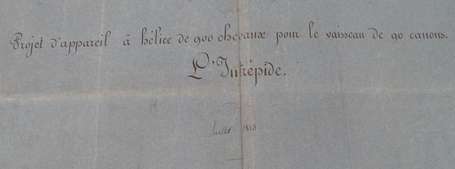 Projet d'appareil à hélice de 900 chevaux pour le vaisseau de 90 canons.
L'Intrépide.